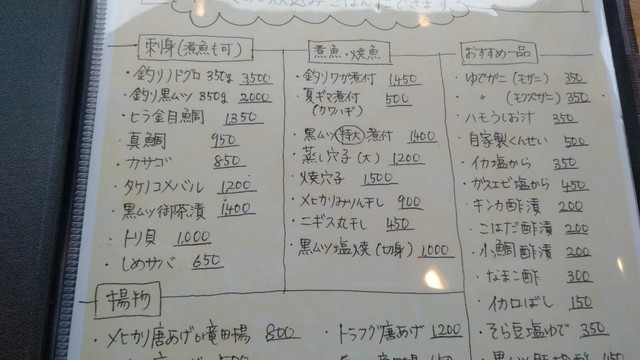 刺身(煮魚も可)
・釣りノドグロ 350g 3500
・釣り黒ムツ 850g 2000
・ヒラ金目鯛 1350
・真鯛 950
・カサゴ 850
・タケノコメバル 1200
・黒ムツ御茶漬 1400
・トリ貝 1,000
・しめサバ 650
煮魚・焼魚
・釣りワガ煮付 1450
・夏ギマ煮付 500
(カワハギ)
・黒ムツ(特大)煮付 1400
・蒸し穴子(大) 1200
・焼穴子 1500
・メヒカリみりん干し 900
・ニギス丸干し 450
・黒ムツ塩焼(切身) 1,000
おすすめ一品
・ゆでガニ(モガニ) 350
・〃(モクズガニ) 350
・ハモうしお汁 350
・自家製くんせい 500
・イカ塩から 350
・ガスエビ塩から 450
・キンカ酢漬 200
・こはだ酢漬 200
・小鯛酢漬 200
・なまこ酢 300
・イカ口ぼし 150
・そら豆塩ゆで 350
揚物
・メヒカリ唐あげか竜田揚 800
・トラフグ唐あげ 1200